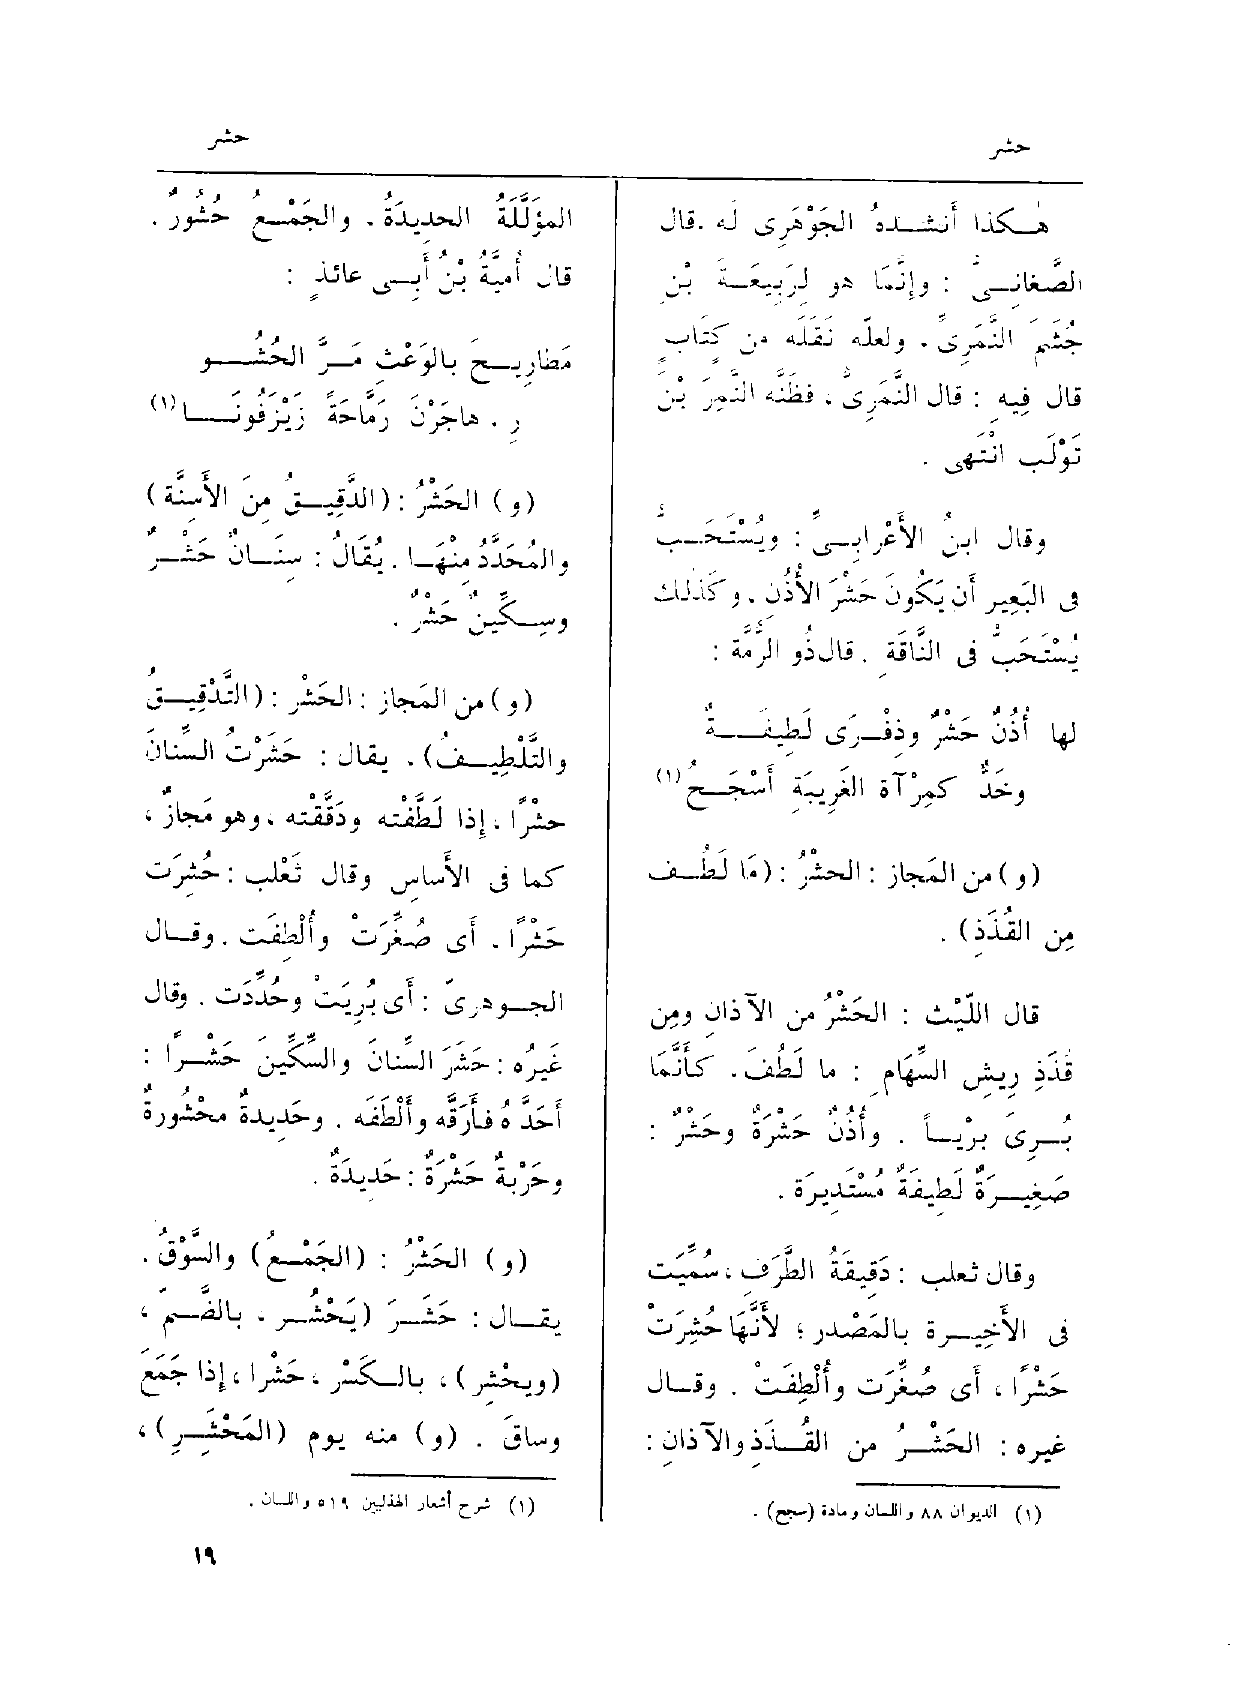 حشر
حشر
هٰكذا أَنشدهُ الجَوْهَرِى لَه . قال
الصَّغانِىُّ : وإِنَّمَا هو لِرَبِيعَةَ بْنِ
جُشَمَ النَّمَرِىِّ . ولعلّه نَقَلَه من كِتَابٍ
قال فِيهِ : قال النَّمَرِىُّ ، فظَنَّه النَّمِرَ بْنَ
تَوْلَب انْتَهى .
وقال ابنُ الأَعْرابِىِّ : ويُسْتَحَبُّ
فى البَعِيرِ أَن يَكُونَ حَشْرَ الأُذُنِ . وكَذٰلك
يُسْتَحَبُّ فى النَّاقَةِ . قال ذُو الرُّمَّة :
لها أُذُنٌ حَشْرٌ وذِفْرَى لَطِيفَةٌ
وخَدٌّ كمِرْآة الغَرِيبَةِ أَسْجَحُ (١)
(و) من المَجاز : الحشْرُ : (مَا لَطُف
مِن القُذَذِ) .
قال اللَّيْث : الحَشْرُ من الآذان ومِن
قُذَذِ رِيشِ السِّهَامِ : ما لَطُفَ . كأَنَّمَا
بُرِىَ بَرْياً . وأُذُنٌ حَشْرَةٌ وحَشْرٌ :
صَغِيرَةٌ لَطِيفَةٌ مُسْتَدِيرَة .
وقال ثعلب : دَقِيقَةُ الطَّرَفِ ، سُمِّيَت
فى الأَخِيرة بالمَصْدر ؛ لأَنَّهَا حُشِرَتْ
حَشْرًا ، أَى صُغِّرَت وأُلْطِفَتْ . وقال
غيره : الحَشْرُ من القُذَذِ والآذانِ :
(١) الديوان ٨٨ واللسان ومادة (سجح) .
المؤَلَّلَةُ الحدِيدَةُ . والجَمْعُ حُشُورٌ .
قال أُمَيَّةُ بْنُ أَبِى عائذٍ :
مَطارِيحَ بالوَعْثِ مَرَّ الحُشُو
رِ . هاجَرْنَ رَمَّاحَةً زَيْزَفُونَا (١)
(و) الحَشْرُ : (الدَّقِيقُ مِنَ الأَسِنَّة)
والمُحَدَّدُ منْهَا . يُقَالُ : سِنَانٌ حَشْرٌ
وسِكِّينٌ حَشْرٌ .
(و) من المَجاز : الحَشْر : (التَّدْقِيقُ
والتَّلْطِيفُ) . يقال : حَشَرْتُ السِّنانَ
حشْرًا ، إِذا لَطَّفْته ودَقَّقْته ، وهو مَجازٌ ،
كما فى الأَساس وقال ثَعْلب : حُشِرَت
حَشْرًا . أَى صُغِّرَتْ وأُلْطِفَت . وقال
الجوهرىّ : أَى بُرِيَتْ وحُدِّدَت . وقال
غَيرُه : حَشَرَ السِّنانَ والسِّكِّينَ حَشْراً :
أَحَدَّهُ فأَرَقَّه وأَلْطَفَه . وحَدِيدةٌ محْشُورةٌ
وحَرْبةٌ حَشْرَةٌ : حَدِيدَةٌ .
(و) الحَشْرُ : (الجَمْعُ) والسَّوْقُ .
يقال : حَشَرَ (يَحْشُر . بالضَّمِّ ،
(ويحْشِر) ، بالكَسْر ، حَشْرا ، إِذا جَمَعَ
وساقَ . (و) منه يوم (المَحْشَِرِ) ،
(١) شرح أشعار الهذليين ٥١٩ واللسان .
١٩